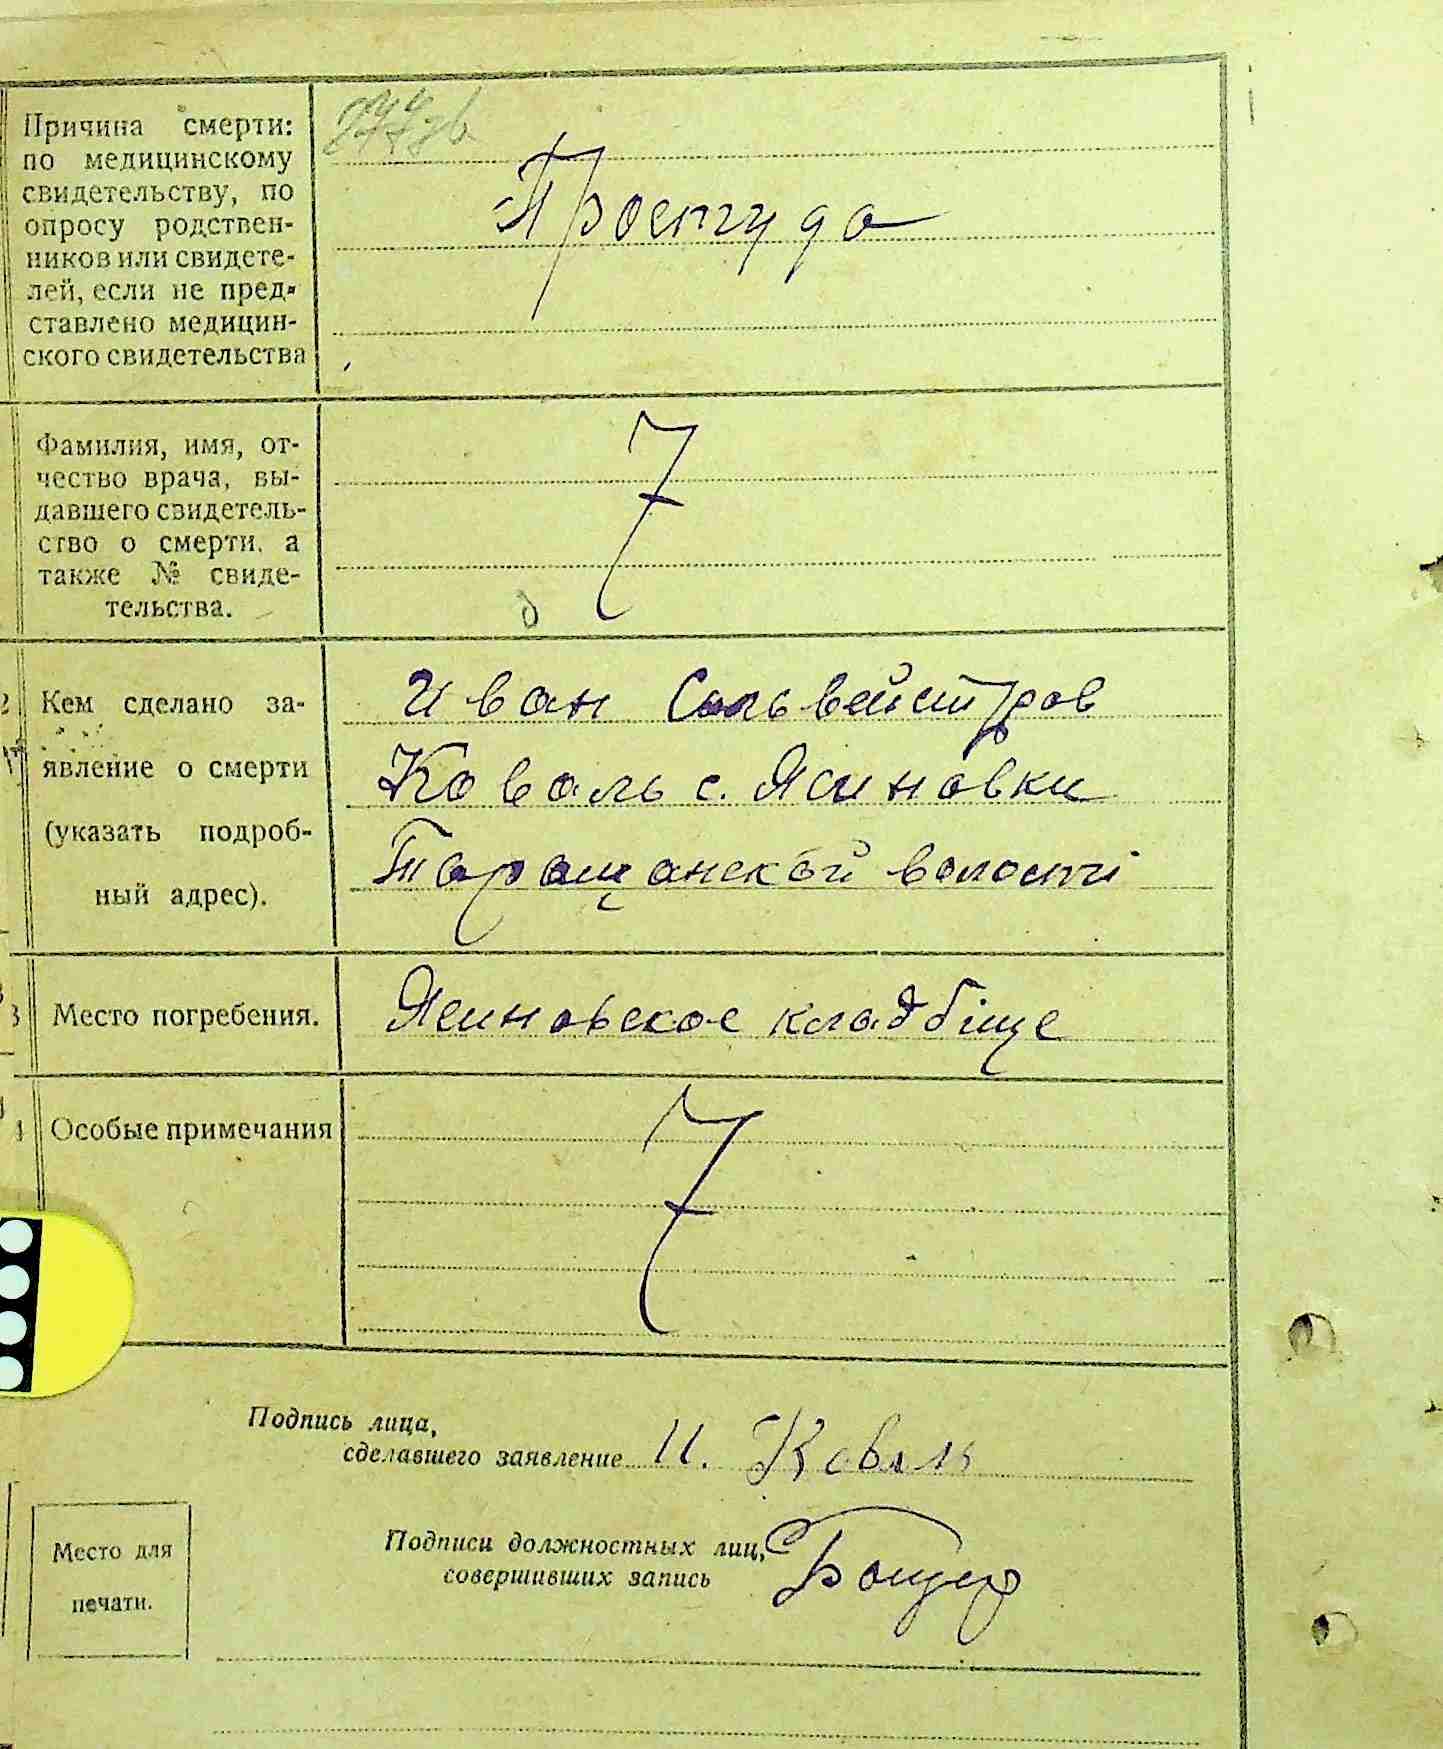 Причина смерти:
по медицинскому
свидетельству, по
опросу родствен-
ников или свидете-
лей, если не пред-
ставлено медицин-
ского свидетельства
Простуда
Фамилия, имя, от-
чество врача, вы-
давшего свидетель-
ство о смерти, а
также № свиде-
тельства.
Кем сделано за-
явление о смерти
(указать подроб-
ный адрес).
Иван Сильвейстров
Коваль с. Ясиновки
Таращанской волости
Место погребения.
Ясиновское кладбіще
Особые примечания
Подпись лица,
сделавшего заявление И. Коваль
Подписи должностных лиц,
совершивших запись
Место для
печати.